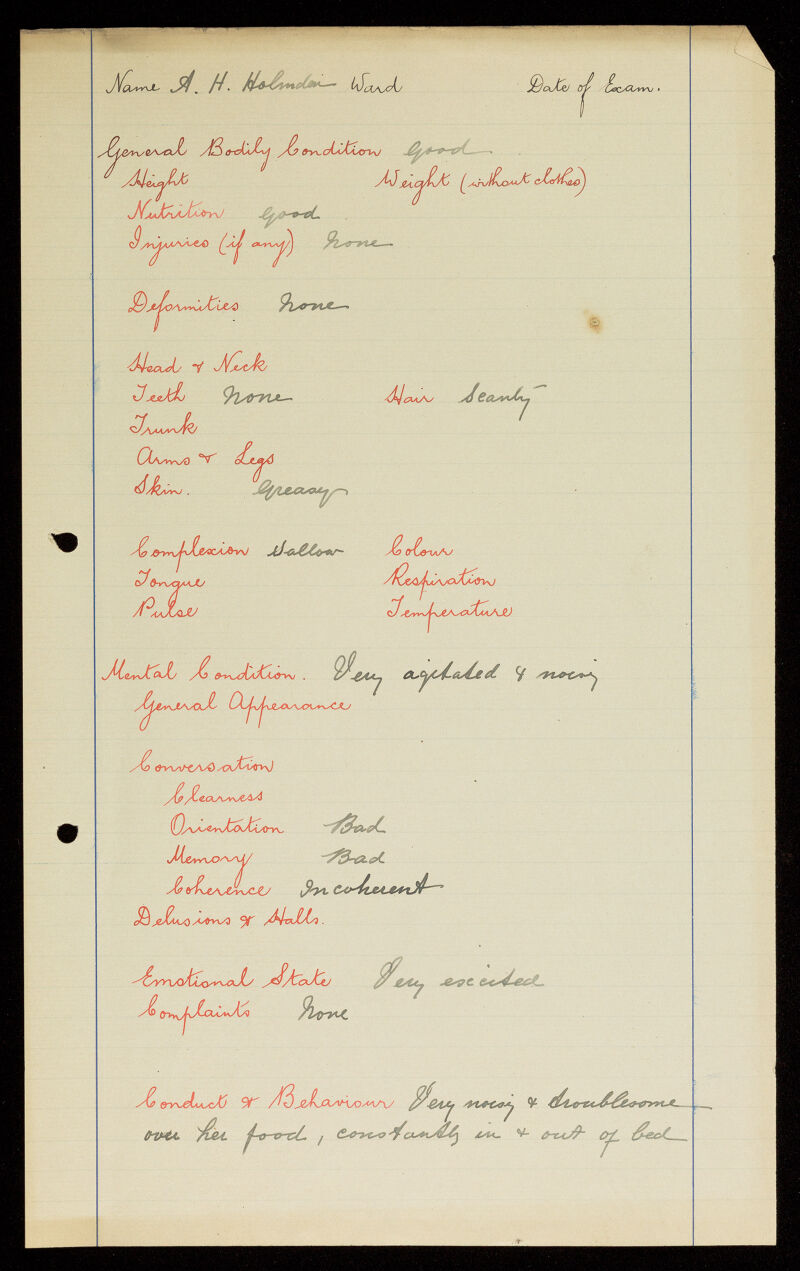 Name A. H. Holmden Ward Date of Exam.
General Bodily Condition Good
Height Weight (without clothes)
Nutrition Good
Injuries (if any) None
Deformities None
Head & Neck
Teeth None Hair Scanty
Trunk
Arms & Legs
Skin. Greasy
Complexion Sallow Colour
Tongue Respiration
Pulse Temperature
Mental Condition. Very agitated & noisy
General Appearance
Conversation
Clearness
Orientation Bad
Memory Bad
Coherence Incoherent
Delusions & Halls.
Emotional State Very excited
Complaints None
Conduct & Behaviour Very noisy & troublesome
over her food, constantly in & out of bed